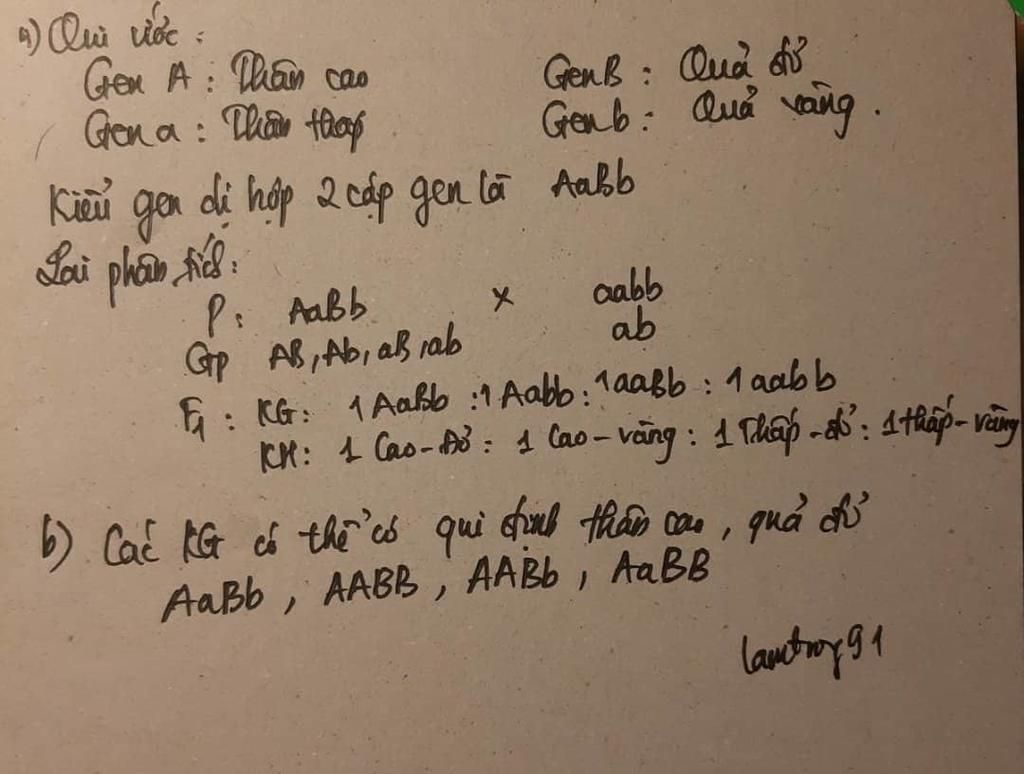 a) Qui ước :
Gen A : Thân cao GenB : Quả đỏ
Gen a : Thân thấp Gen b : Quả vàng .
Kiểu gen dị hợp 2 cặp gen là AaBb
Lai phân tích :
P : AaBb x aabb
Gp AB, Ab, aB, ab ab
F1 : KG : 1 AaBb : 1 Aabb : 1 aaBb : 1 aabb
KH : 1 Cao - Đỏ : 1 Cao - vàng : 1 Thấp - đỏ : 1 thấp - vàng
b) Các KG có thể có qui định thân cao, quả đỏ
AaBb, AABB, AABb, AaBB
lamtroy91